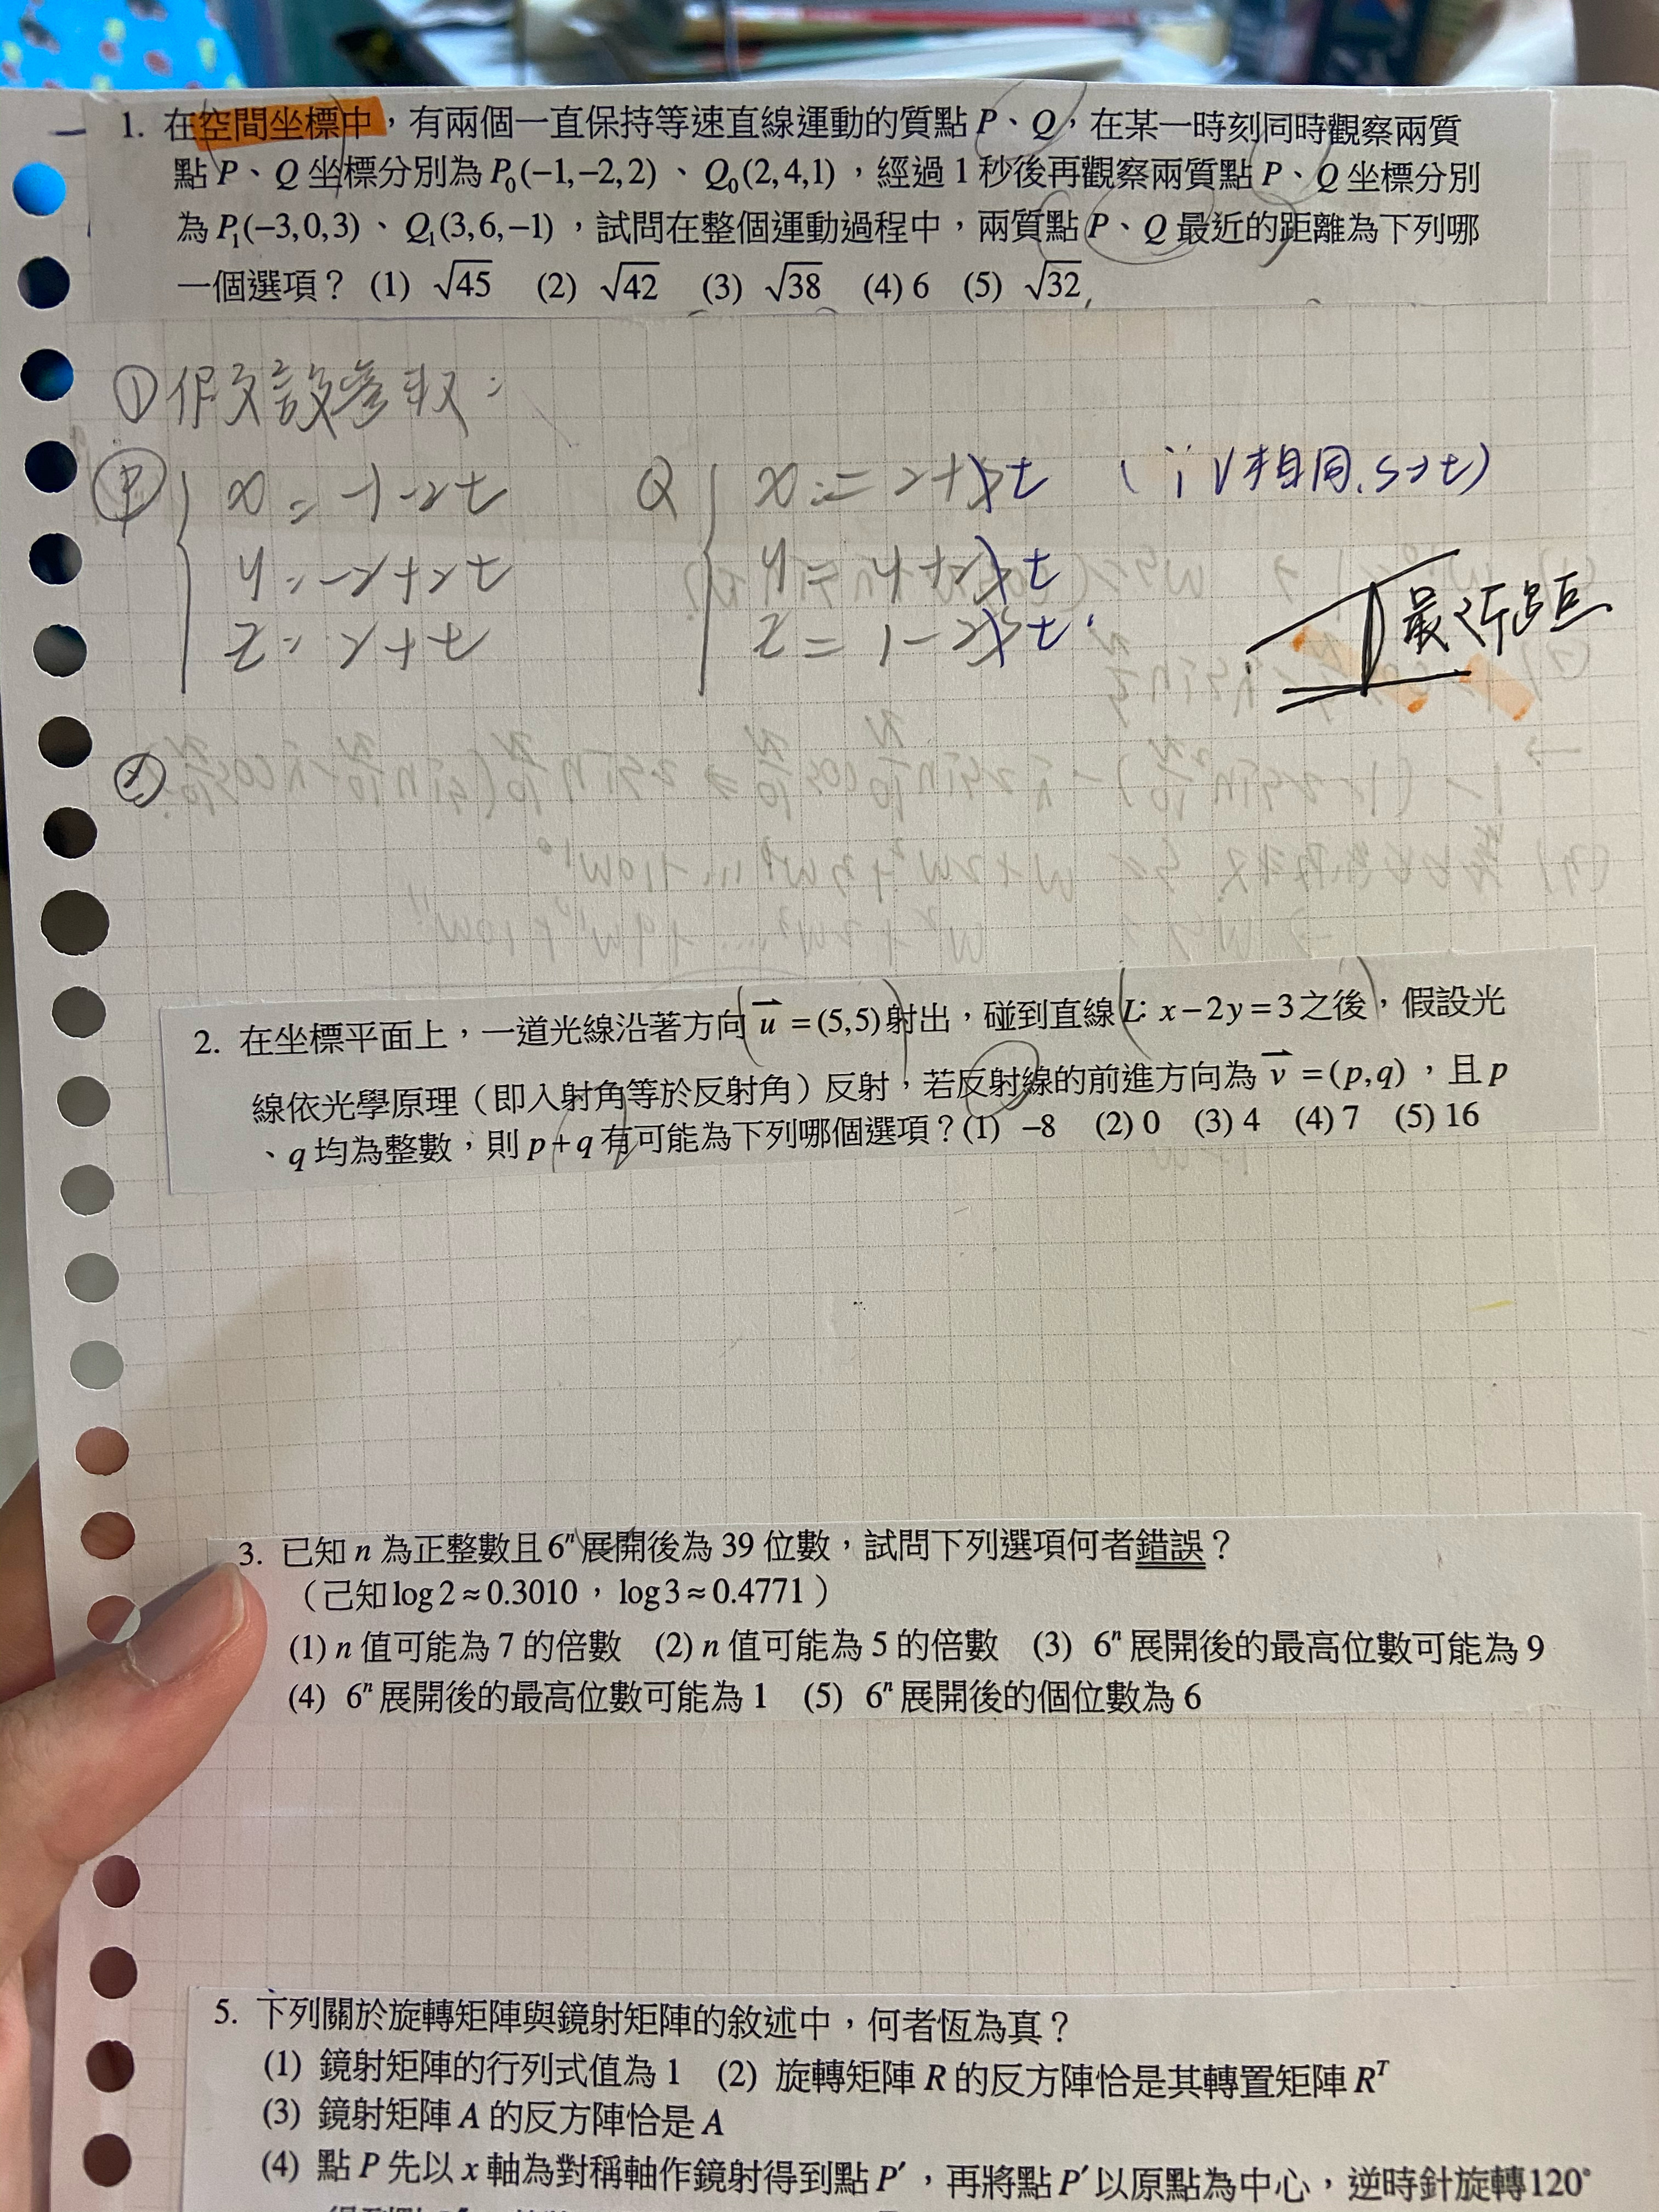 1. 在空間坐標中，有兩個一直保持等速直線運動的質點 P、Q，在某一時刻同時觀察兩質
點 P、Q 坐標分別為 P₀(−1,−2,2)、Q₀(2,4,1)，經過 1 秒後再觀察兩質點 P、Q 坐標分別
為 P₁(−3,0,3)、Q₁(3,6,−1)，試問在整個運動過程中，兩質點 P、Q 最近的距離為下列哪
一個選項？ (1) √45 (2) √42 (3) √38 (4) 6 (5) √32
① 假設參數：
P { x = -1-2t Q { x = 2+t (∵V相同.s→t)
y = -2+2t y = 4+2t
z = 2+t z = 1-2t
最近距
②
2. 在坐標平面上，一道光線沿著方向 u⃗ = (5,5) 射出，碰到直線 L: x−2y=3 之後，假設光
線依光學原理（即入射角等於反射角）反射，若反射線的前進方向為 v⃗ = (p,q)，且 p
、q 均為整數，則 p+q 有可能為下列哪個選項？(1) −8 (2) 0 (3) 4 (4) 7 (5) 16
3. 已知 n 為正整數且 6ⁿ 展開後為 39 位數，試問下列選項何者錯誤？
（己知 log 2 ≈ 0.3010，log 3 ≈ 0.4771）
(1) n 值可能為 7 的倍數 (2) n 值可能為 5 的倍數 (3) 6ⁿ 展開後的最高位數可能為 9
(4) 6ⁿ 展開後的最高位數可能為 1 (5) 6ⁿ 展開後的個位數為 6
5. 下列關於旋轉矩陣與鏡射矩陣的敘述中，何者恆為真？
(1) 鏡射矩陣的行列式值為 1 (2) 旋轉矩陣 R 的反方陣恰是其轉置矩陣 Rᵀ
(3) 鏡射矩陣 A 的反方陣恰是 A
(4) 點 P 先以 x 軸為對稱軸作鏡射得到點 P′，再將點 P′ 以原點為中心，逆時針旋轉120°